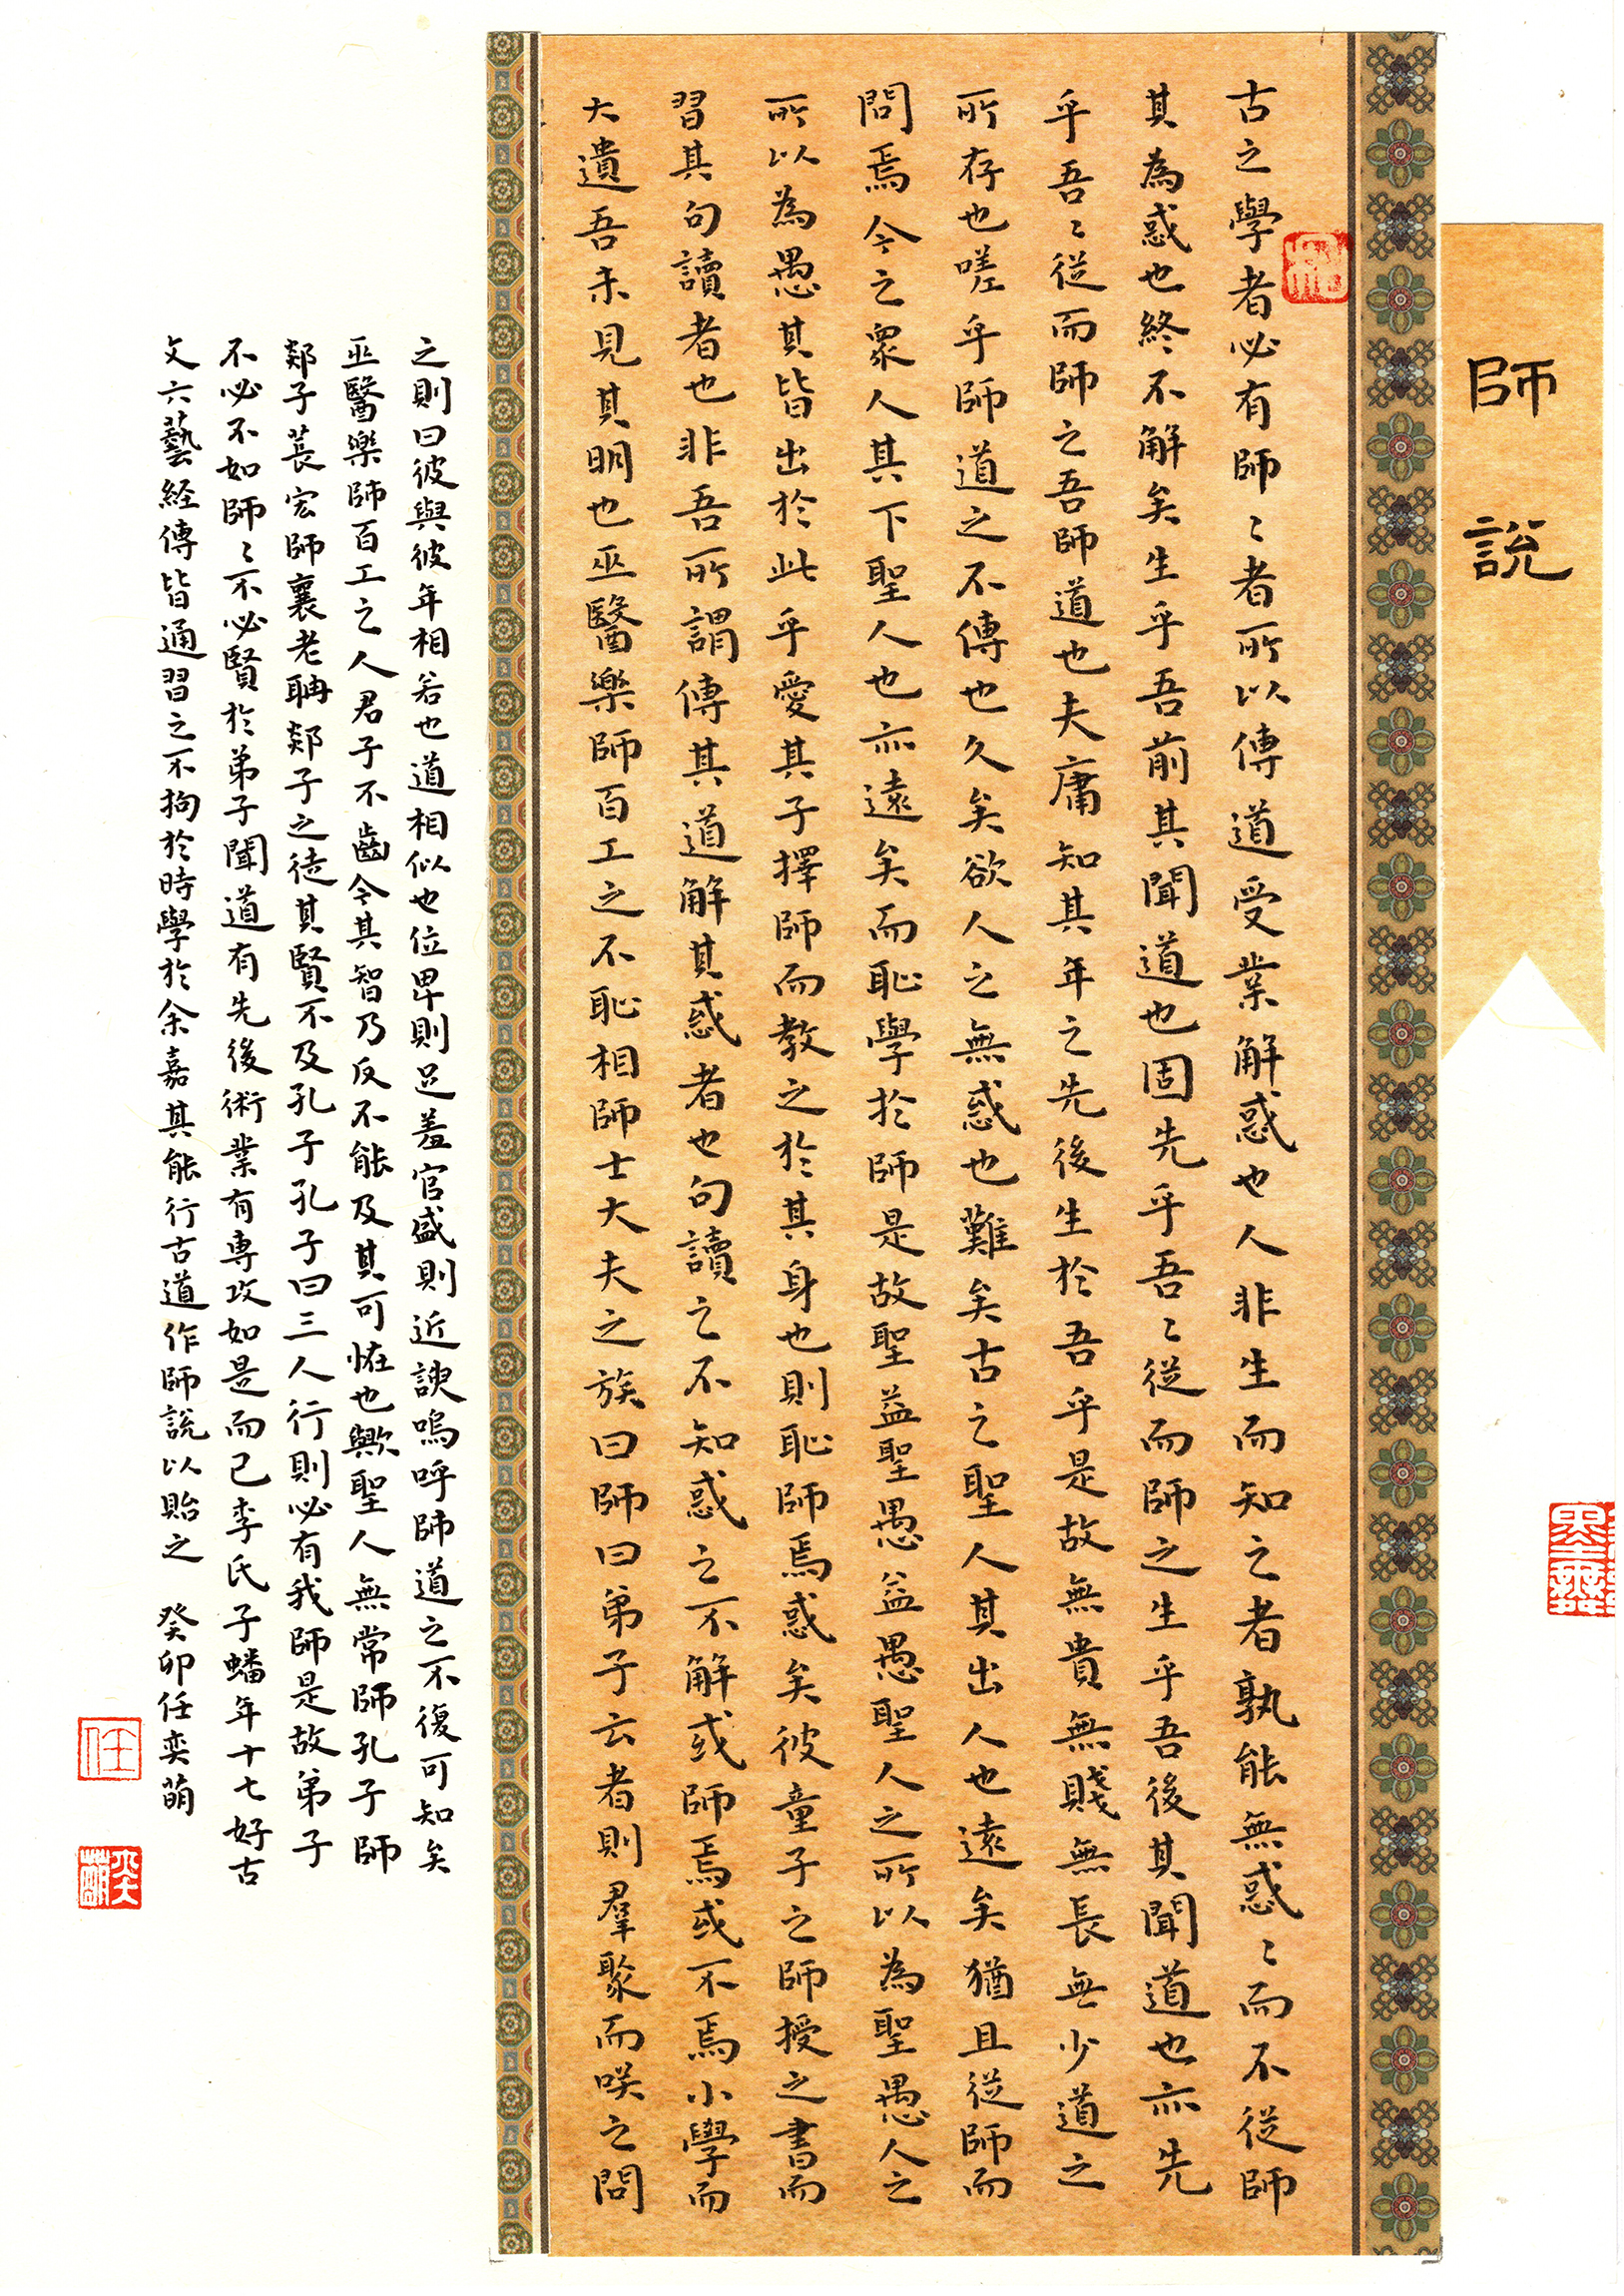 師說
古之學者必有師〻者所以傳道受業解惑也人非生而知之者孰能無惑〻而不從師
其為惑也終不解矣生乎吾前其聞道也固先乎吾〻從而師之生乎吾後其聞道也亦先
乎吾〻從而師之吾師道也夫庸知其年之先後生於吾乎是故無貴無賤無長無少道之
所存也嗟乎師道之不傳也久矣欲人之無惑也難矣古之聖人其出人也遠矣猶且從師而
問焉今之眾人其下聖人也亦遠矣而恥學於師是故聖益聖愚益愚聖人之所以為聖愚人之
所以為愚其皆出於此乎愛其子擇師而教之於其身也則恥師焉惑矣彼童子之師授之書而
習其句讀者也非吾所謂傳其道解其惑者也句讀之不知惑之不解或師焉或不焉小學而
大遺吾未見其明也巫醫樂師百工之不恥相師士大夫之族曰師曰弟子云者則羣聚而咲之問
之則曰彼與彼年相若也道相似也位卑則足羞官盛則近諛嗚呼師道之不復可知矣
巫醫樂師百工之人君子不齒今其智乃反不能及其可恠也歟聖人無常師孔子師
郯子萇宏師襄老聃郯子之徒其賢不及孔子孔子曰三人行則必有我師是故弟子
不必不如師〻不必賢於弟子聞道有先後術業有專攻如是而已李氏子蟠年十七好古
文六藝經傳皆通習之不拘於時學於余嘉其能行古道作師說以貽之 癸卯任奕萌
任
奕萌